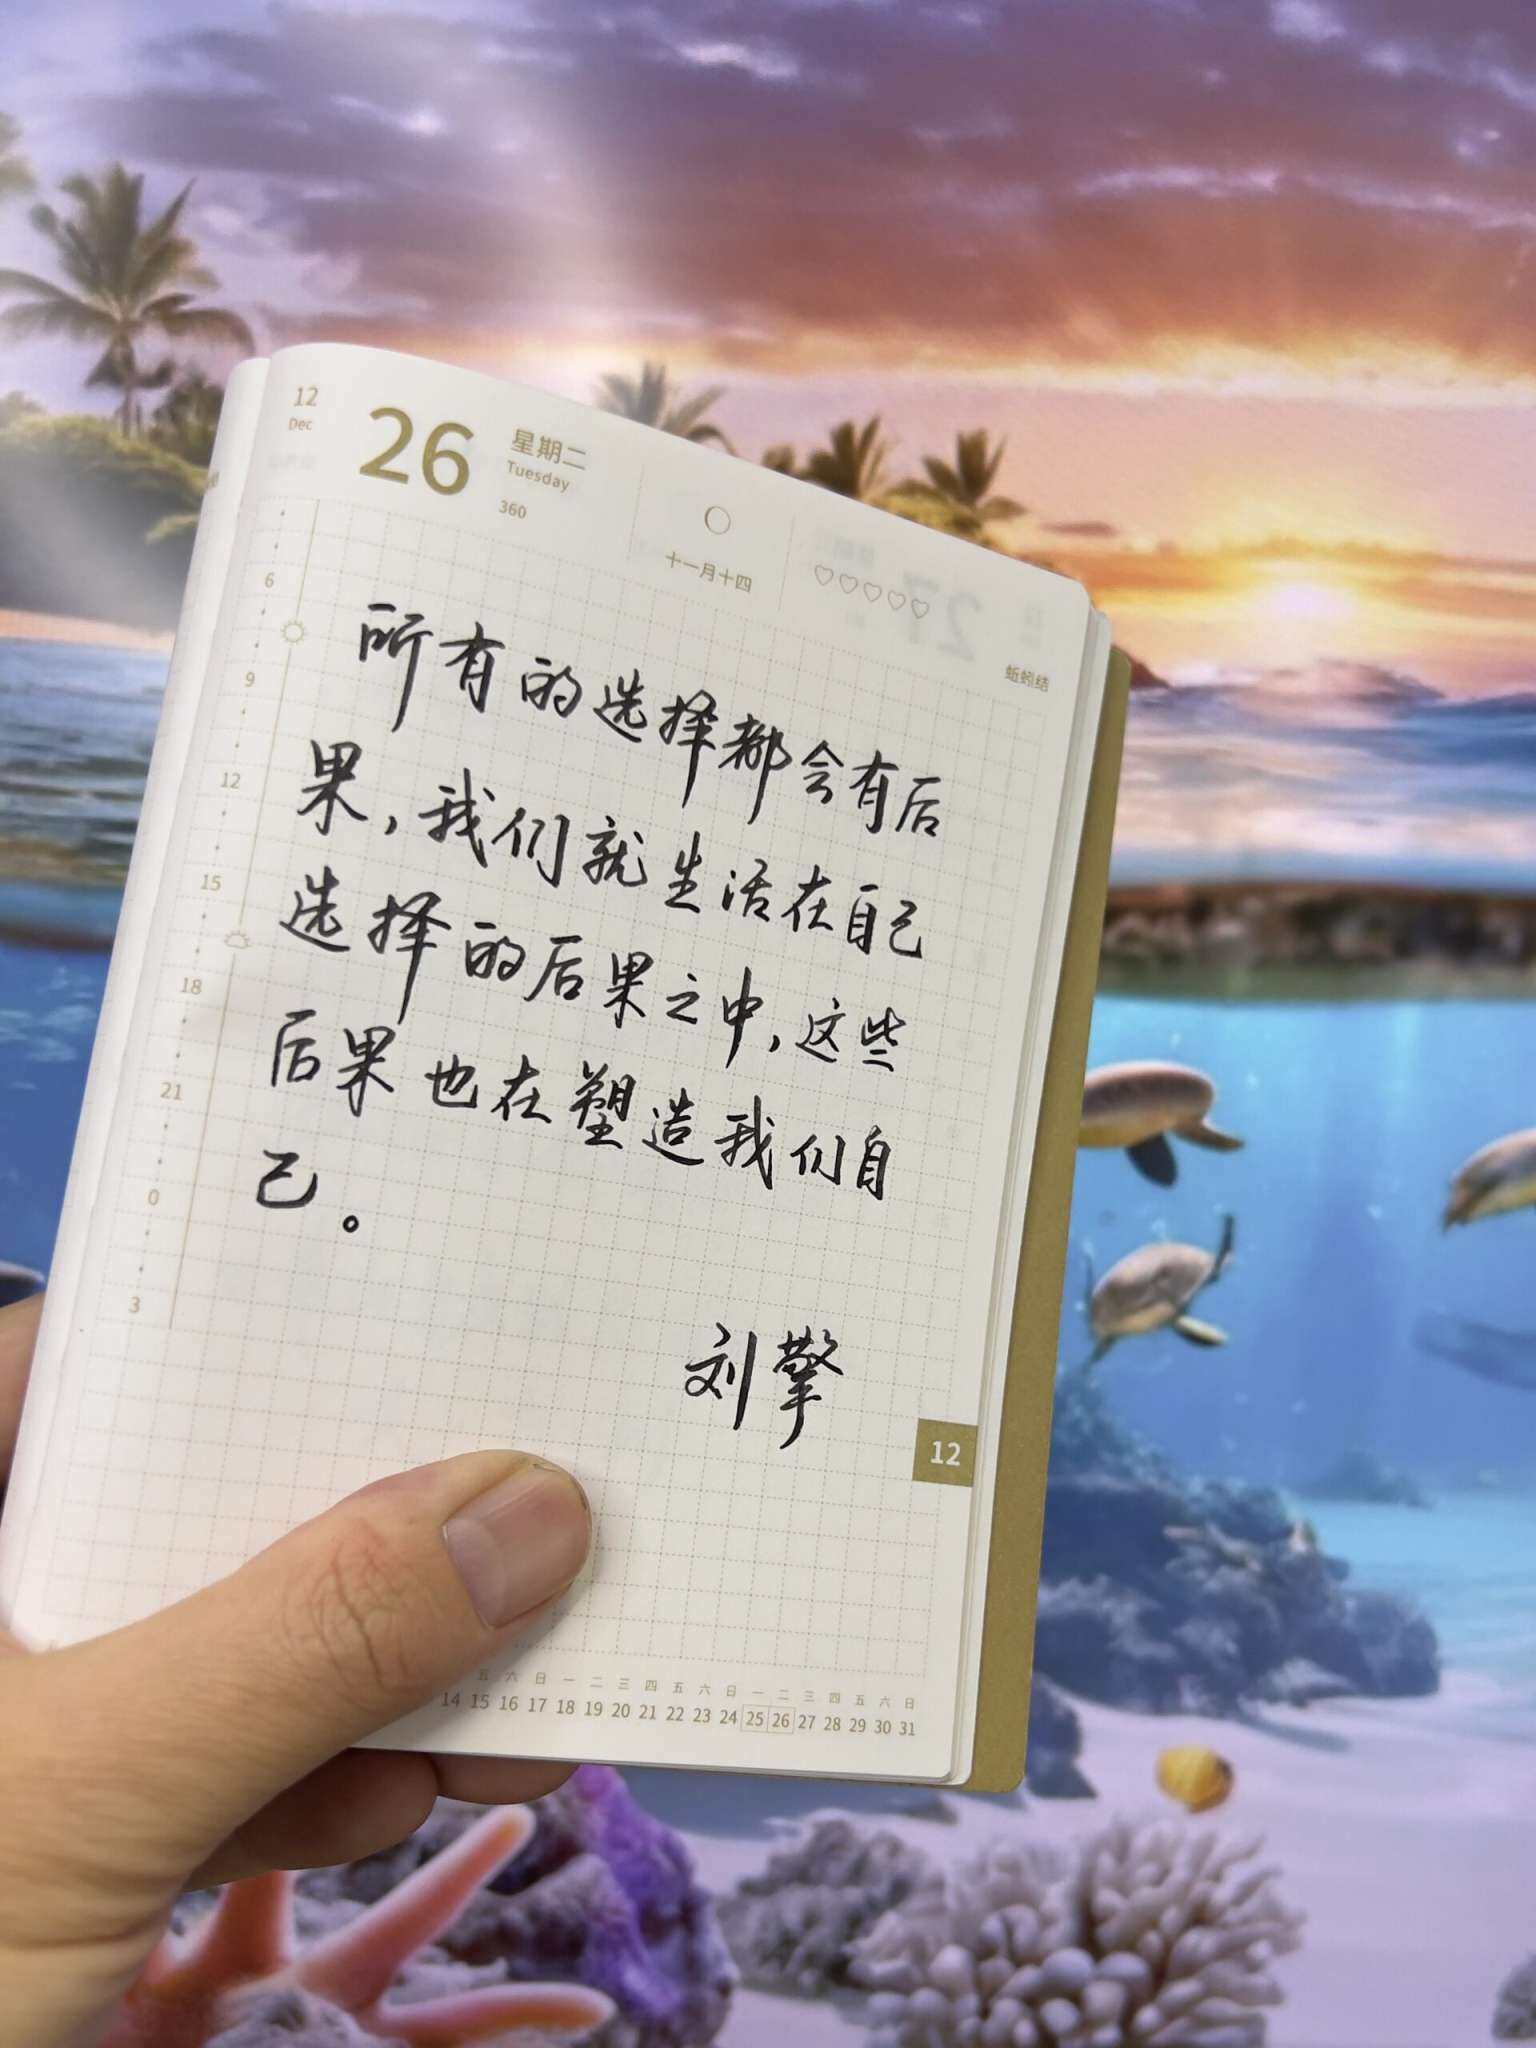 12
Dec
26
星期二
Tuesday
360
十一月十四
♡♡♡♡♡
蚯蚓结
6
9
12
15
18
21
0
3
所有的选择都会有后
果,我们就生活在自己
选择的后果之中,这些
后果也在塑造我们自
己。
刘擎
12
五 六 日 一 二 三 四 五 六 日 一 二 三 四 五 六 日
14 15 16 17 18 19 20 21 22 23 24 25 26 27 28 29 30 31